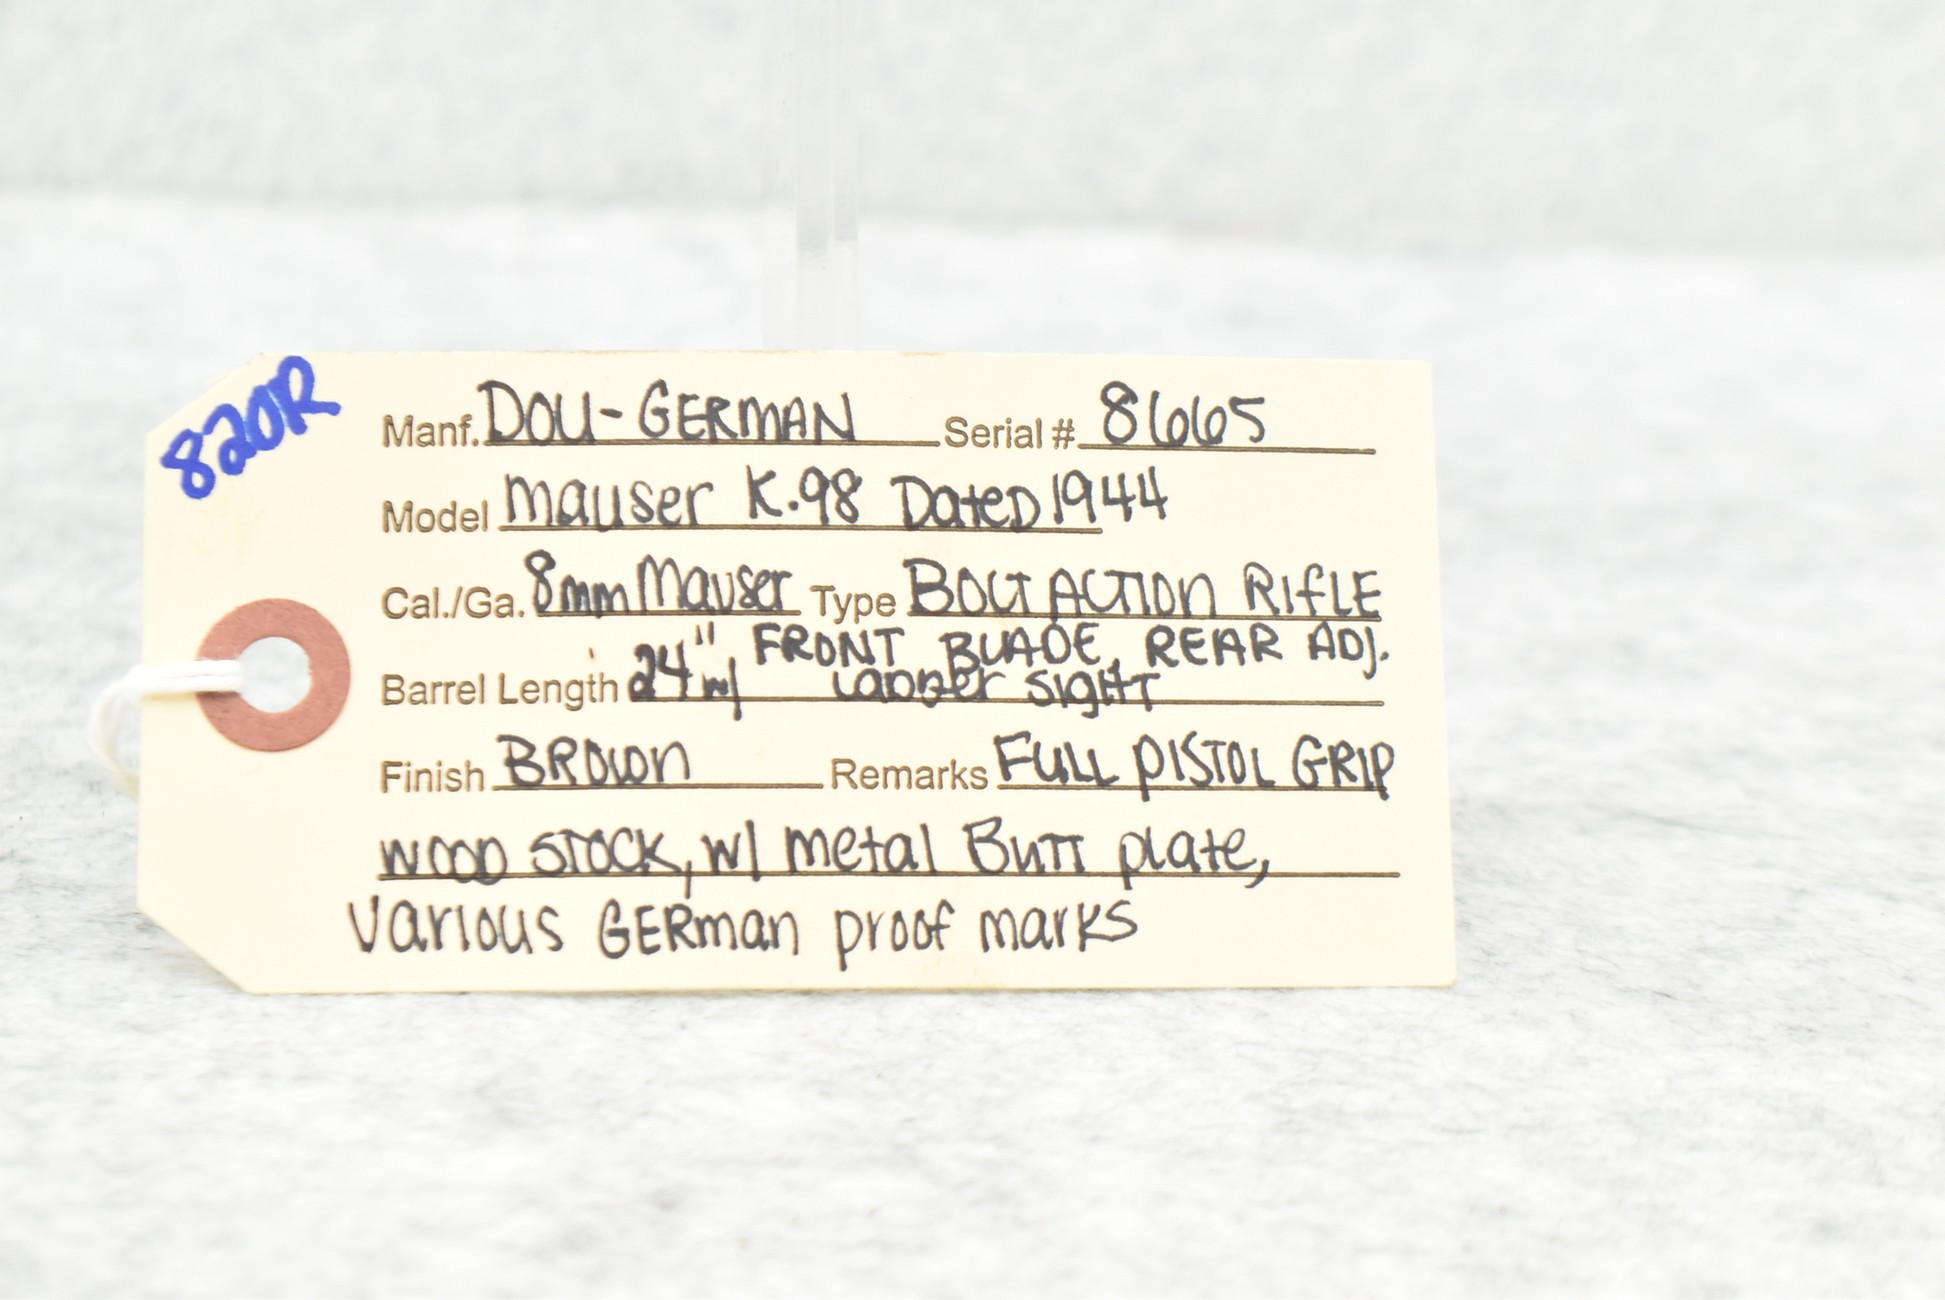 820R
Manf. DOU-GERMAN Serial # 8665
Model Mauser K.98 Dated 1944
Cal./Ga. 8mm Mauser Type BOLT ACTION RIFLE
Barrel Length 24" w/ FRONT BLADE, REAR ADJ.
Ladder Sight
Finish BROWN Remarks FULL PISTOL GRIP
WOOD STOCK, w/ metal Butt plate,
Various GERman proof marks